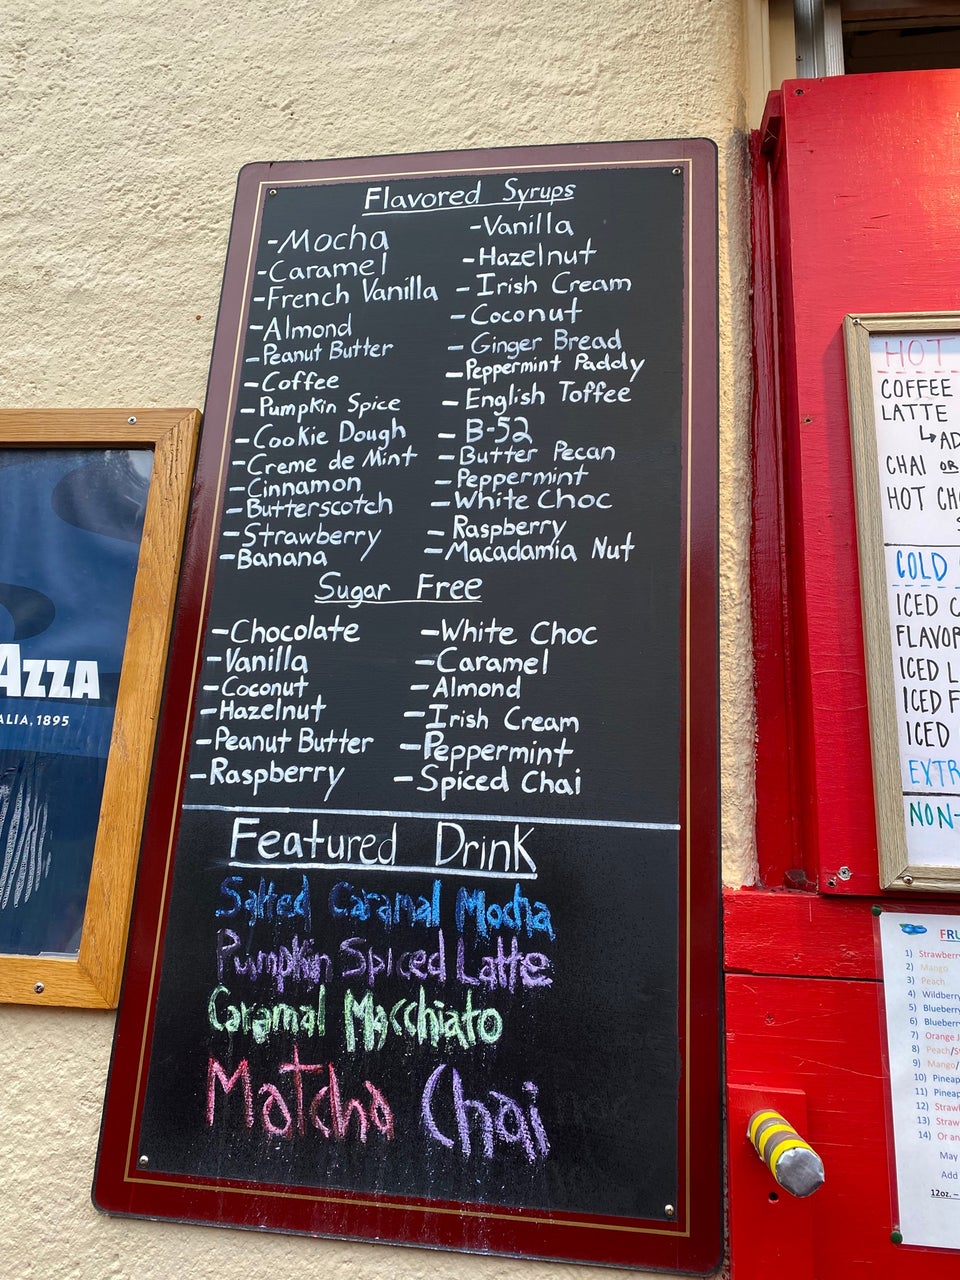 Flavored Syrups
-Mocha
-Caramel
-French Vanilla
-Almond
-Peanut Butter
-Coffee
-Pumpkin Spice
-Cookie Dough
-Creme de Mint
-Cinnamon
-Butterscotch
-Strawberry
-Banana
-Vanilla
-Hazelnut
-Irish Cream
-Coconut
-Ginger Bread
-Peppermint Paddy
-English Toffee
-B-52
-Butter Pecan
-Peppermint
-White Choc
-Raspberry
-Macadamia Nut
Sugar Free
-Chocolate
-Vanilla
-Coconut
-Hazelnut
-Peanut Butter
-Raspberry
-White Choc
-Caramel
-Almond
-Irish Cream
-Peppermint
-Spiced Chai
Featured Drink
Salted Caramal Mocha
Pumpkin Spiced Latte
Caramal Macchiato
Matcha Chai
AZZA
ALIA, 1895
HOT
COFFEE
LATTE
↳AD
CHAI OR
HOT CHO
COLD
ICED C
FLAVOR
ICED L
ICED F
ICED
EXTR
NON-
FRU
1) Strawberry
2) Mango
3) Peach
4) Wildberry
5) Blueberry
6) Blueberry
7) Orange J
8) Peach/St
9) Mango/
10) Pineap
11) Pineap
12) Strawb
13) Straw
14) Or an
May
Add
12oz. –